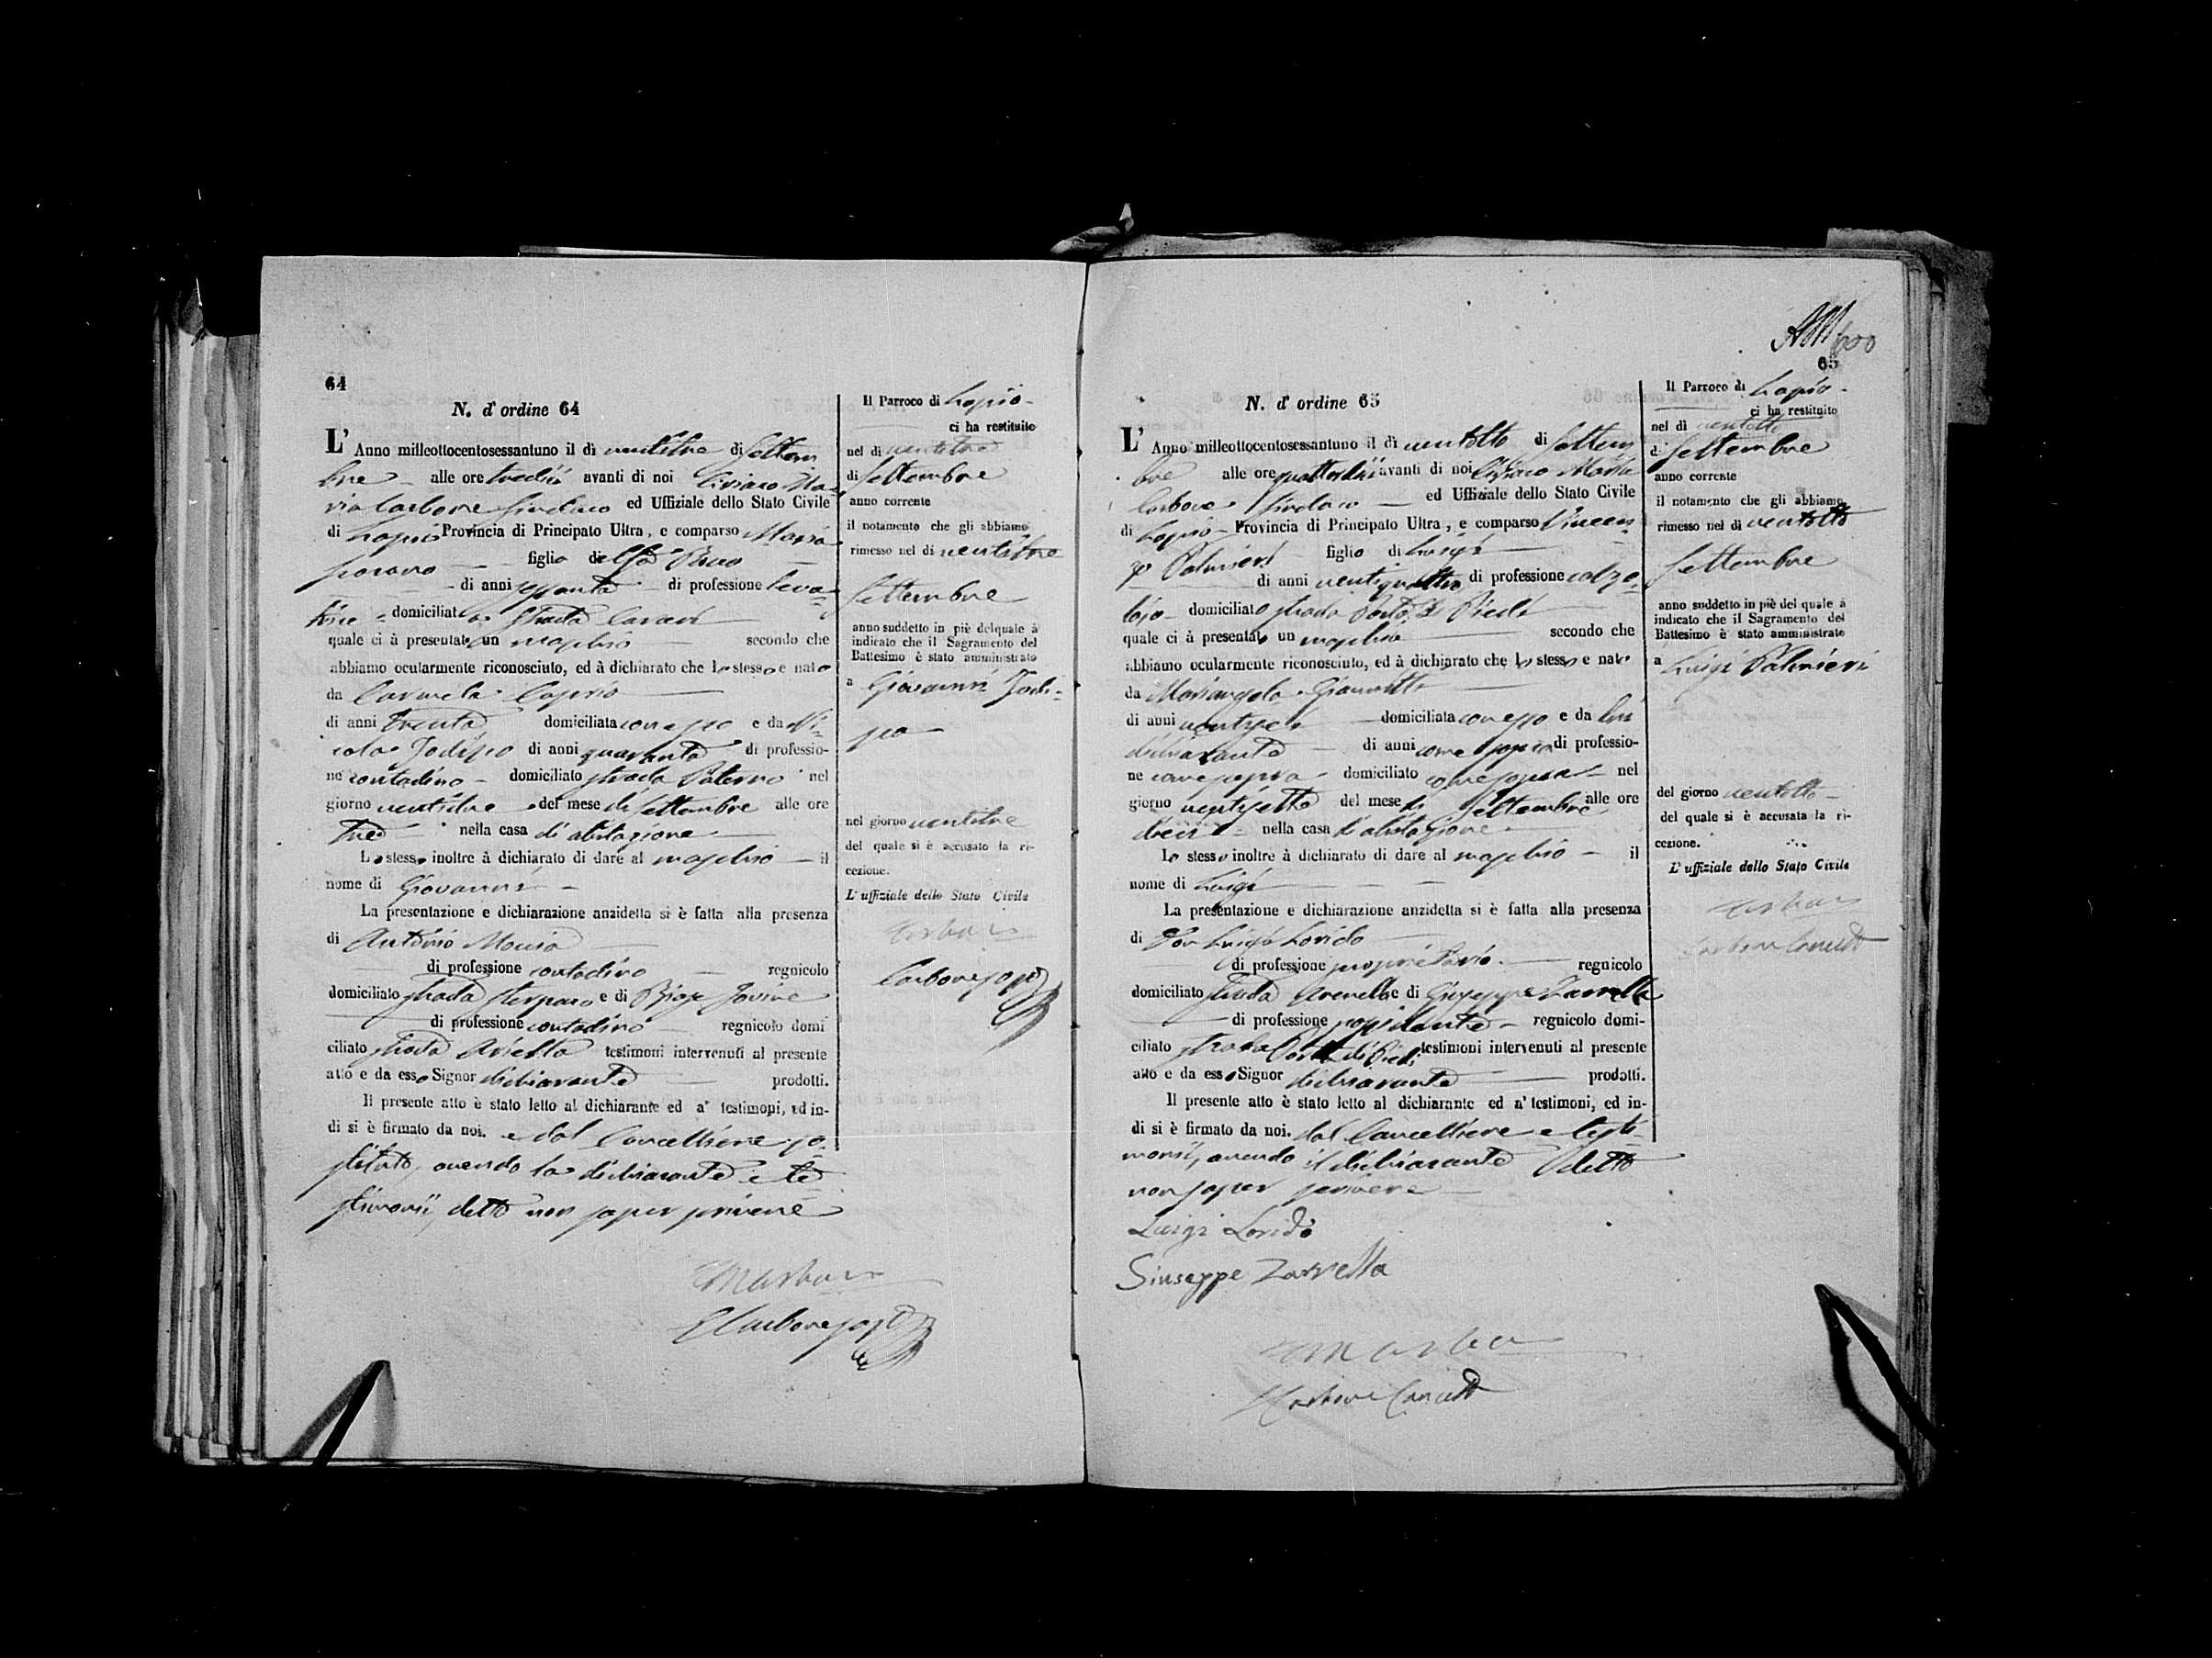 64
N. d' ordine 64
L' Anno milleottocentosessantuno il dì ventitre di Settem
bre alle ore tredici avanti di noi Ciriaco Ma-
ria Carbone Sindaco ed Uffiziale dello Stato Civile
di Lapio Provincia di Principato Ultra, e comparso Maria
figlia di
di anni sessanta di professione leva-
trice domiciliata Strada
quale ci à presentato un maschio secondo che
abbiamo ocularmente riconosciuto, ed à dichiarato che lo stesso e nato
da Carmela Caprio
di anni trenta domiciliata con esso e da Ni-
cola Jodipo di anni quaranta di professio-
ne contadino domiciliato strada Paterno nel
giorno ventitre del mese di Settembre alle ore
tre nella casa di abitazione
Lo stesso inoltre à dichiarato di dare al maschio il
nome di Giovanni
La presentazione e dichiarazione anzidetta si è fatta alla presenza
di Antonio
di professione contadino regnicolo
domiciliato strada e di Biage Jovine
di professione contadino regnicolo domi
ciliato strada Ariella testimoni intervenuti al presente
atto e da esso Signor dichiarante prodotti.
Il presente atto è stato letto al dichiarante ed a' testimoni, ed in-
di si è firmato da noi. e dal Cancelliere so-
stituto, avendo la dichiarante e te
stimonii, detto non saper scrivere
Il Parroco di Lapio
ci ha restituito
nel di ventitre
di Settembre
anno corrente
il notamento che gli abbiamo
rimesso nel di ventitre
Settembre
anno suddetto in piè del quale à
indicato che il Sagramento del
Battesimo è stato amministrato
a Giovanni Jodi-
po
nel giorno ventitre
del quale si è accusato la ri-
cezione.
L' uffiziale dello Stato Civile
Carbone
65
N. d' ordine 65
L' Anno milleottocentosessantuno il dì ventotto di Settem
bre alle ore quattordici avanti di noi Ciriaco Maria
Carbone Sindaco ed Uffiziale dello Stato Civile
di Lapio Provincia di Principato Ultra, e comparso Vincen-
zo Palmieri figlio di Luigi
di anni ventiquattro di professione calzo-
lajo domiciliato strada Porta di Piedi
quale ci à presentato un maschio secondo che
abbiamo ocularmente riconosciuto, ed à dichiarato che lo stesso e nato
da Mariangela
di anni domiciliata con esso e da lui
dichiarante di anni come sopra di professio-
ne come sopra domiciliato come sopra nel
giorno ventisette del mese di Settembre alle ore
dieci nella casa di abitazione
Lo stesso inoltre à dichiarato di dare al maschio il
nome di Luigi
La presentazione e dichiarazione anzidetta si è fatta alla presenza
di Don Luigi Lorido
di professione proprietario regnicolo
domiciliato strada Arenella e di Giuseppe Zarrella
di professione possidente regnicolo domi-
ciliato strada Porta di Piedi testimoni intervenuti al presente
atto e da esso Signor dichiarante prodotti.
Il presente atto è stato letto al dichiarante ed a' testimoni, ed in-
di si è firmato da noi. dal Cancelliere e testi-
monii, avendo il dichiarante detto
non saper scrivere
Luigi Lorido
Giuseppe Zarrella
Il Parroco di Lapio
ci ha restituito
nel di ventotto
di Settembre
anno corrente
il notamento che gli abbiamo
rimesso nel di ventotto
Settembre
anno suddetto in piè del quale à
indicato che il Sagramento del
Battesimo è stato amministrato
a Luigi Palmieri
del giorno ventotto
del quale si è accusata la ri-
cezione.
L' uffiziale dello Stato Civile